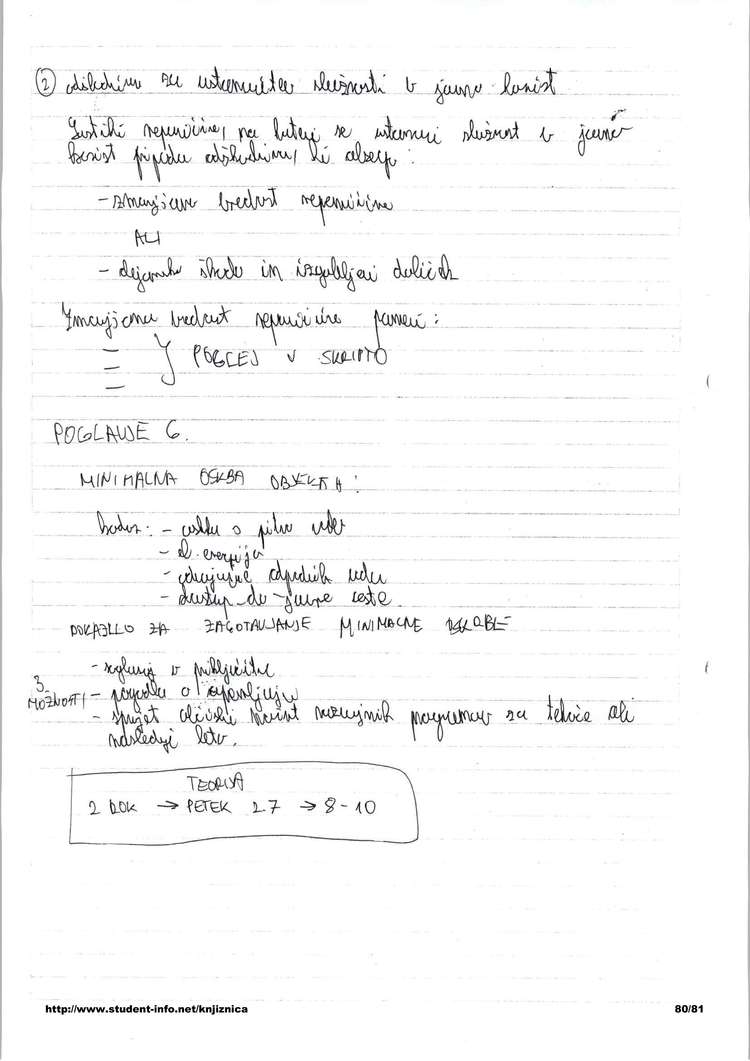 ② odškodnina za ustanovitev služnosti v javno korist
Lastniki nepremičnine, na kateri se ustanovi služnost v javno
korist pripada odškodnina, ki obsega:
- zmanjšano vrednost nepremičnine
ALI
- dejansko škodo in izgubljeni dobiček
Zmanjšana vrednost nepremičnine pomeni:
POGLEJ V SKRIPTO
POGLAVJE 6.
MINIMALNA OSKBA OBJEKTA:
- oskba s pitno vodo
- el. energija
- odvajanje odpadnih voda
- dostop do javne ceste
DOKAZILO ZA ZAGOTAVLJANJE MINIMALNE OSKRBE
- soglasij v priključitvi
3. MOŽNOSTI - pogodba o opremljanju
- sprejet občinski načrt razvojnih programov za tekoče ali
naslednje leto.
TEORIJA
2 ROK → PETEK 2.7 → 8-10
http://www.student-info.net/knjiznica
80/81